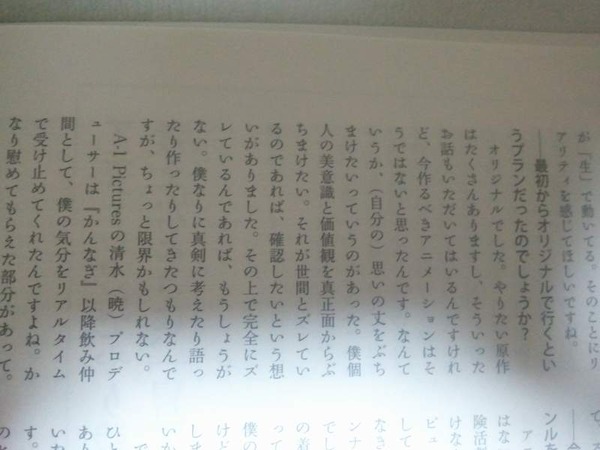 が「生」で動いてる。そのことにリ
アリティを感じてほしいですね。
――最初からオリジナルで行くとい
うプランだったのでしょうか？
オリジナルでした。やりたい原作
はたくさんありますし、そういった
お話もいただいてはいるんですけれ
ど、今作るべきアニメーションはそ
うではないと思ったんです。なんて
いうか、（自分の）思いの丈をぶち
まけたいっていうのがあった。僕個
人の美意識と価値観を真正面からぶ
ちまけたい。それが世間とズレてい
るのであれば、確認したいという想
いがありました。その上で完全にズ
レているんであれば、もうしょうが
ない。僕なりに真剣に考えたり語っ
たり作ったりしてきたつもりなんで
すが、ちょっと限界かもしれない。
A-1 Picturesの清水（暁）プロデ
ューサーは『かんなぎ』以降飲み仲
間として、僕の気分をリアルタイム
で受け止めてくれたんですよね。か
なり慰めてもらえた部分があって。